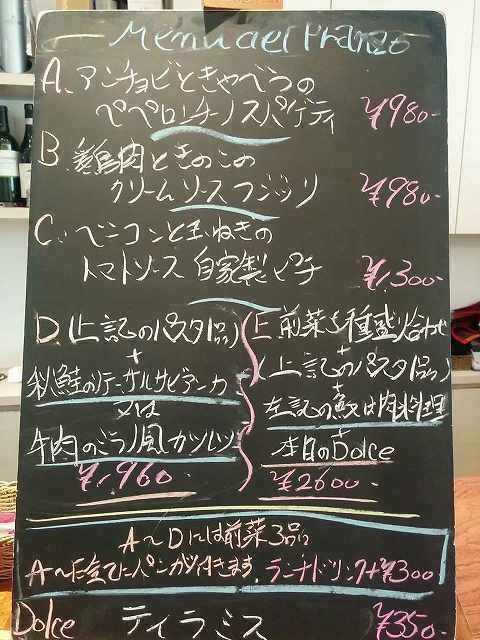 Menu del Pranzo
A. アンチョビときゃべつの
ペペロンチーノスパゲティ ¥980-
B. 鶏肉ときのこの
クリームソースフジッリ ¥980-
C. ベーコンと玉ねぎの
トマトソース 自家製ピチ ¥1,300-
D (上記のパスタ1品)
+
秋鮭の サルサビアンカ
又は
牛肉のミラノ風カツレツ
¥1,960-
E 前菜5種盛り合わせ
+
(上記のパスタ1品)
+
左記の魚又は肉料理
+
本日のDolce
¥2600-
A〜Dには前菜3品
A〜E全てにパンが付きます。ランチドリンク+¥300
Dolce ティラミス ¥350-